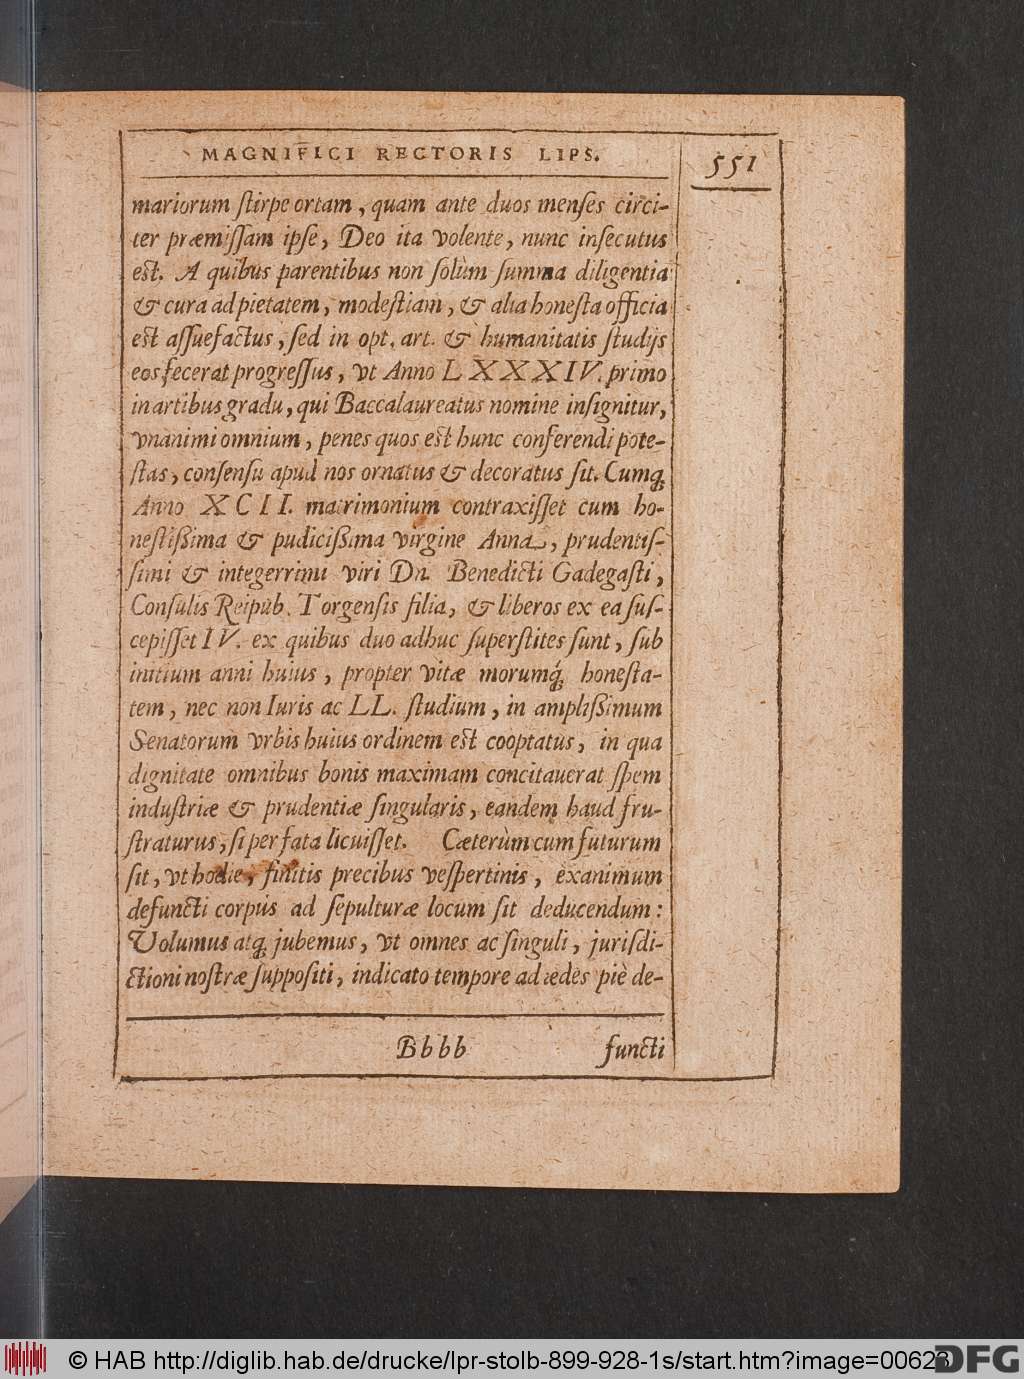 MAGNIFICI RECTORIS LIPS.
551
mariorum ſtirpe ortam, quam ante duos menſes circi-
ter præmiſſam ipſe, Deo ita volente, nunc inſecutus
est. A quibus parentibus non ſolùm ſumma diligentia
& cura ad pietatem, modeſtiam, & alia honeſta officia
est aſſuefactus, ſed in opt. art. & humanitatis ſtudijs
eos fecerat progreſſus, vt Anno LXXXIV. primo
in artibus gradu, qui Baccalaureatus nomine inſignitur,
vnanimi omnium, penes quos est hunc conferendi pote-
ſtas, conſenſu apud nos ornatus & decoratus ſit. Cumq́;
Anno XCII. matrimonium contraxiſſet cum ho-
neſtißima & pudicißima virgine Anna, prudentiſ-
ſimi & integerrimi viri Dn. Benedicti Gadegaſti,
Conſulis Reipub. Torgenſis filia, & liberos ex ea ſuſ-
cepiſſet IV. ex quibus duo adhuc ſuperſtites ſunt, ſub
initium anni huius, propter vitæ morumq́; honeſta-
tem, nec non Iuris ac LL. ſtudium, in amplißimum
Senatorum vrbis huius ordinem est cooptatus, in qua
dignitate omnibus bonis maximam concitauerat ſpem
induſtriæ & prudentiæ ſingularis, eandem haud fru-
ſtraturus, ſi per fata licuiſſet. Cæterùm cum futurum
ſit, vt hodie, finitis precibus veſpertinis, exanimum
defuncti corpus ad ſepulturæ locum ſit deducendum:
Volumus atq; jubemus, vt omnes ac ſinguli, jurisdi-
ctioni noſtræ ſuppoſiti, indicato tempore ad ædes piè de-
Bbbb
functi
© HAB http://diglib.hab.de/drucke/lpr-stolb-899-928-1s/start.htm?image=00623
DFG